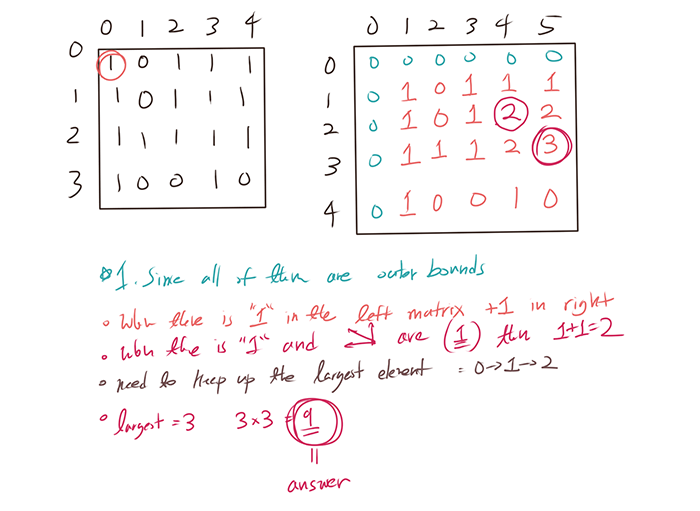 0 1 2 3 4
0 1 0 1 1 1
1 1 0 1 1 1
2 1 1 1 1 1
3 1 0 0 1 0
0 1 2 3 4 5
0 0 0 0 0 0 0
1 0 1 0 1 1 1
2 0 1 0 1 2 2
3 0 1 1 1 2 3
4 0 1 0 0 1 0
1. Since all of them are outer bounds
When there is "1" in the left matrix +1 in right
when the is "1" and are (1) then 1+1=2
need to keep up the largest element = 0→1→2
largest = 3 3×3 = 9
answer